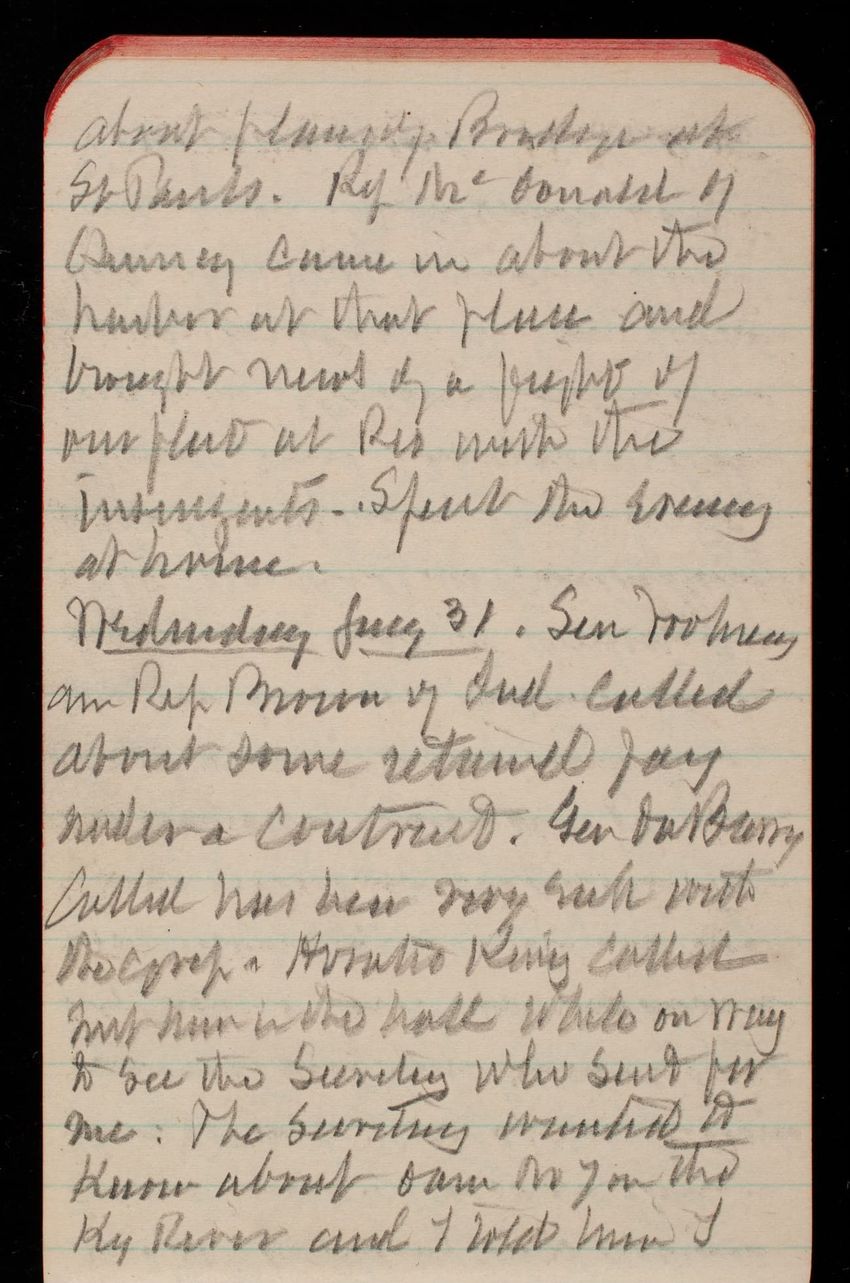 about Bridge at
St Pauls. Rep McDonald of
Quincy came in about the
harbor at that place and
brought news of a fight of
our fleet at Rio with the
insurgents -. Spent the evening
at home.
Wednesday Jany 31. Sen Voorhees
an Rep Brown of Ind. called
about some retained pay
under a contract. Gen DuBarry
called has been very sick with
the grip. Horatio King called
met him in the hall while on way
to see the Secretary who send for
me: The Secretary wanted to
know about Dam No 7 on the
Ky River and I told him I